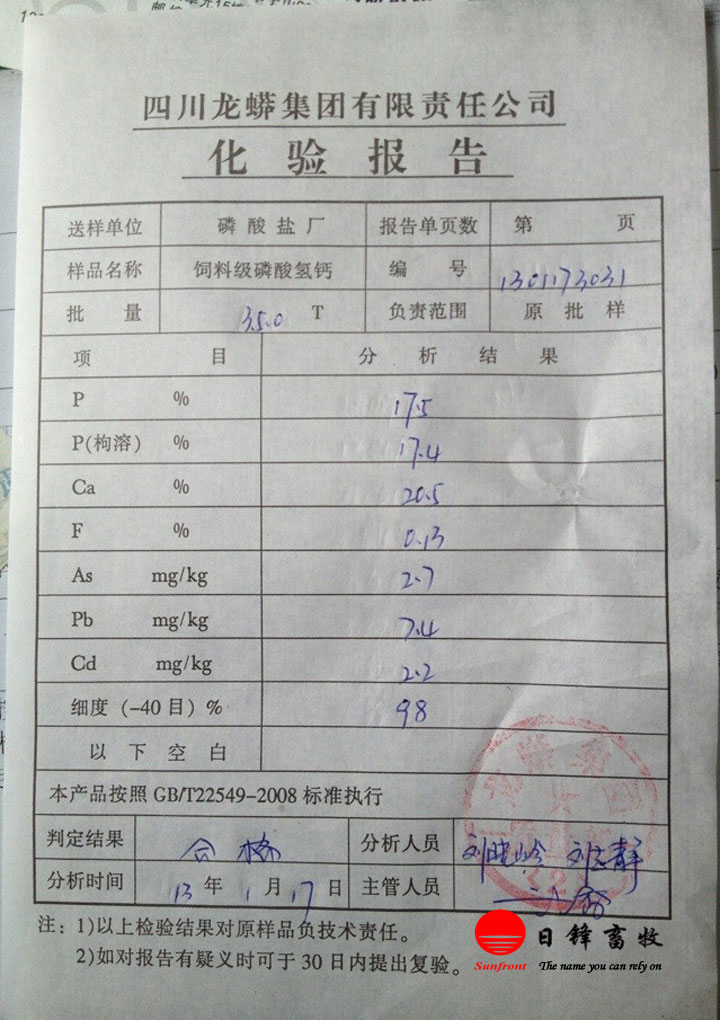 四川龙蟒集团有限责任公司
化验报告
送样单位 磷酸盐厂 报告单页数 第 页
样品名称 饲料级磷酸氢钙 编号 1301173031
批量 35.0 T 负责范围 原批样
项目 分析结果
P % 17.5
P(枸溶) % 17.4
Ca % 20.5
F % 0.13
As mg/kg 2.7
Pb mg/kg 7.4
Cd mg/kg 2.2
细度(-40目)% 98
以下空白
本产品按照 GB/T22549-2008 标准执行
判定结果 合格 分析人员 刘晓岭 刘志静
分析时间 13 年 1 月 17 日 主管人员
注: 1)以上检验结果对原样品负技术责任。
2)如对报告有疑义时可于 30 日内提出复验。
日锋畜牧
Sunfront The name you can rely on